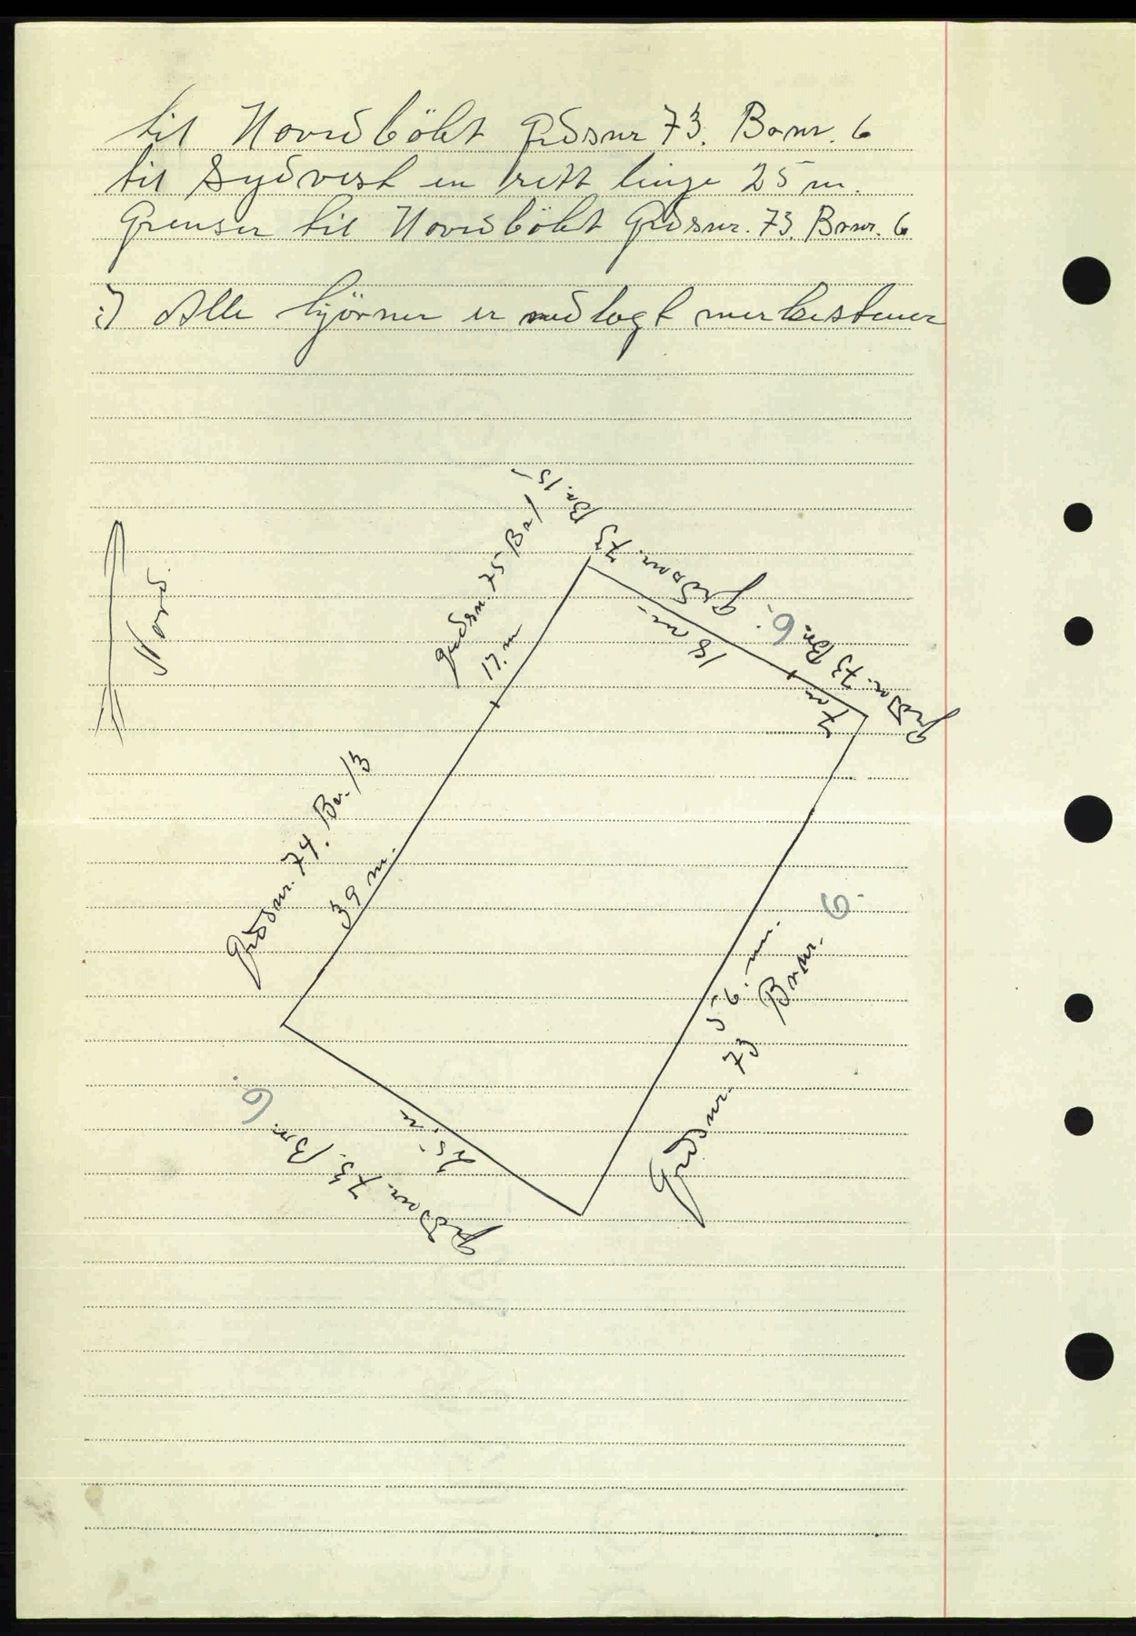 til Nordbökt Gårdsnr 73. Bo nr. 6
til Sydvest en rett linje 25 m.
Grenser til Nordbökt Gårdsnr. 73. Brnr. 6
:) Alle hjörner er nedlagt merkestener
Nord.
Gårdsnr. 75 Br 1
17. m
Gårdsnr. 73 Bn. 15
18 m.
Gårdsnr. 73 Bn. 6.
7 m
Gårdsnr. 74. Br. 13
39 m.
56. m.
Gårdsnr. 73 Brnr. 6.
25. m
Gårdsnr. 73. Bn. 6.